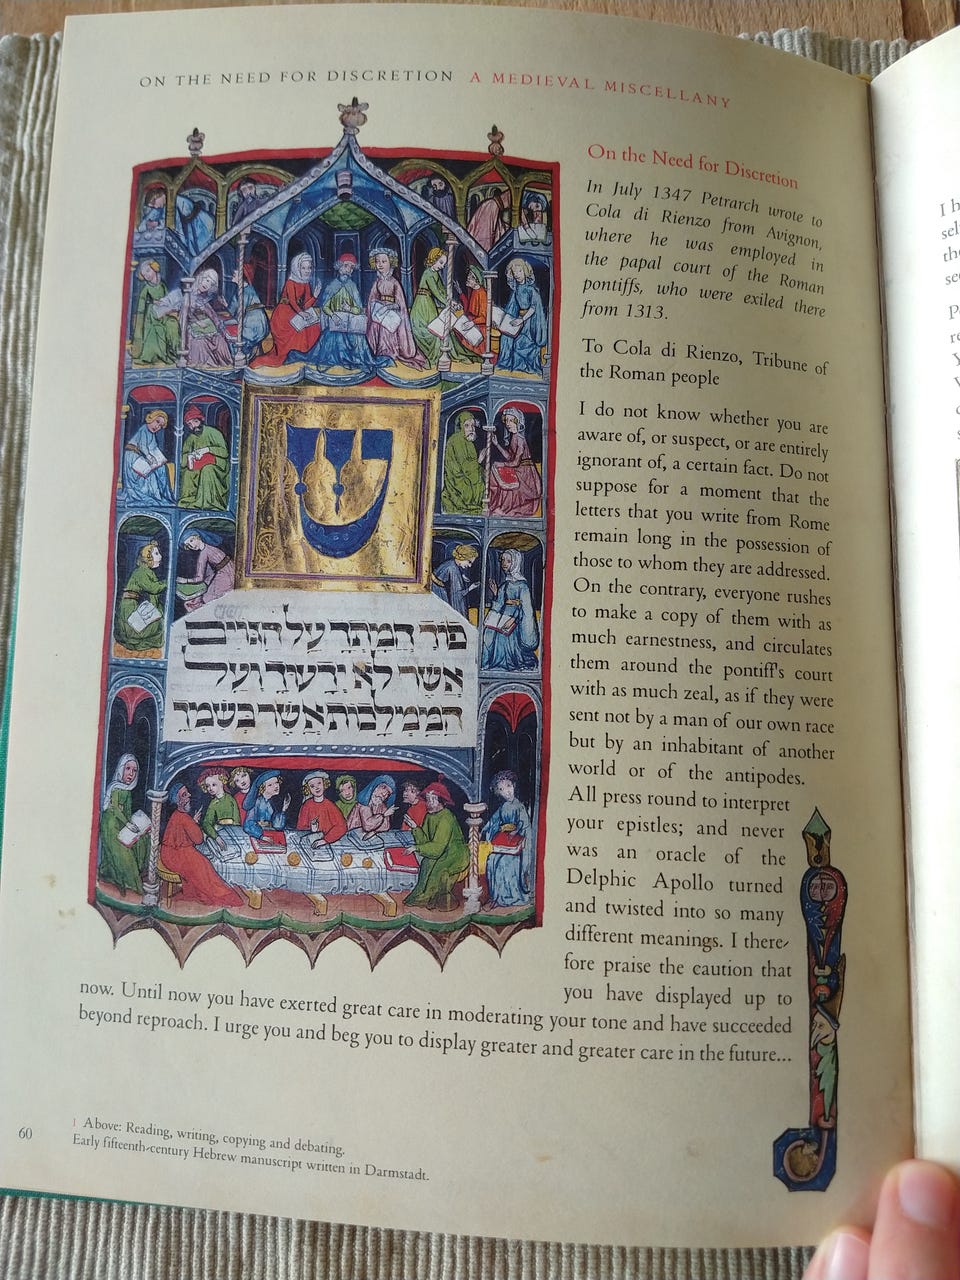 ON THE NEED FOR DISCRETION A MEDIEVAL MISCELLANY
ש
פוך חמתך על הגוים
אשר לא ידעוך ועל
הממלכות אשר בשמך
On the Need for Discretion
In July 1347 Petrarch wrote to
Cola di Rienzo from Avignon,
where he was employed in
the papal court of the Roman
pontiffs, who were exiled there
from 1313.
To Cola di Rienzo, Tribune of
the Roman people
I do not know whether you are
aware of, or suspect, or are entirely
ignorant of, a certain fact. Do not
suppose for a moment that the
letters that you write from Rome
remain long in the possession of
those to whom they are addressed.
On the contrary, everyone rushes
to make a copy of them with as
much earnestness, and circulates
them around the pontiff's court
with as much zeal, as if they were
sent not by a man of our own race
but by an inhabitant of another
world or of the antipodes.
All press round to interpret
your epistles; and never
was an oracle of the
Delphic Apollo turned
and twisted into so many
different meanings. I there-
fore praise the caution that
you have displayed up to
now. Until now you have exerted great care in moderating your tone and have succeeded
beyond reproach. I urge you and beg you to display greater and greater care in the future...
1 Above: Reading, writing, copying and debating.
Early fifteenth-century Hebrew manuscript written in Darmstadt.
60